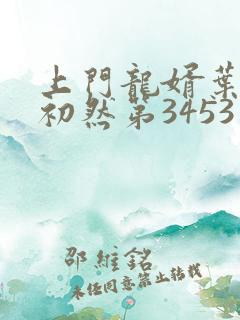 上門龍婿葉
初然第3453
邵維銘
未经同意禁止转载